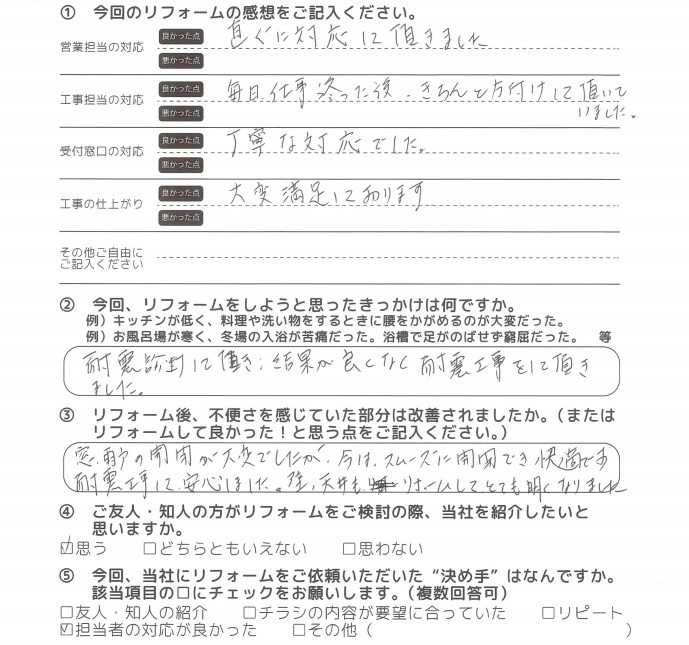 ① 今回のリフォームの感想をご記入ください。
営業担当の対応 良かった点 直ぐに対応して頂きました
悪かった点
工事担当の対応 良かった点 毎日、仕事終った後、きちんと片付けして頂いて
悪かった点 いました。
受付窓口の対応 良かった点 丁寧な対応でした。
悪かった点
工事の仕上がり 良かった点 大変満足しております
悪かった点
その他ご自由に
ご記入ください
② 今回、リフォームをしようと思ったきっかけは何ですか。
例）キッチンが低く、料理や洗い物をするときに腰をかがめるのが大変だった。
例）お風呂場が寒く、冬場の入浴が苦痛だった。浴槽で足がのばせず窮屈だった。 等
耐震診断して頂き、結果が良くなく耐震工事をして頂き
ました。
③ リフォーム後、不便さを感じていた部分は改善されましたか。（または
リフォームして良かった！と思う点をご記入ください。）
窓、雨戸の開閉が大変でしたが、今は、スムーズに開閉でき快適です
耐震工事して、安心しました。壁、天井もリホームしてとても明くなりました
④ ご友人・知人の方がリフォームをご検討の際、当社を紹介したいと
思いますか。
☑思う □どちらともいえない □思わない
⑤ 今回、当社にリフォームをご依頼いただいた“決め手”はなんですか。
該当項目の□にチェックをお願いします。（複数回答可）
□友人・知人の紹介 □チラシの内容が要望に合っていた □リピート
☑担当者の対応が良かった □その他（ ）